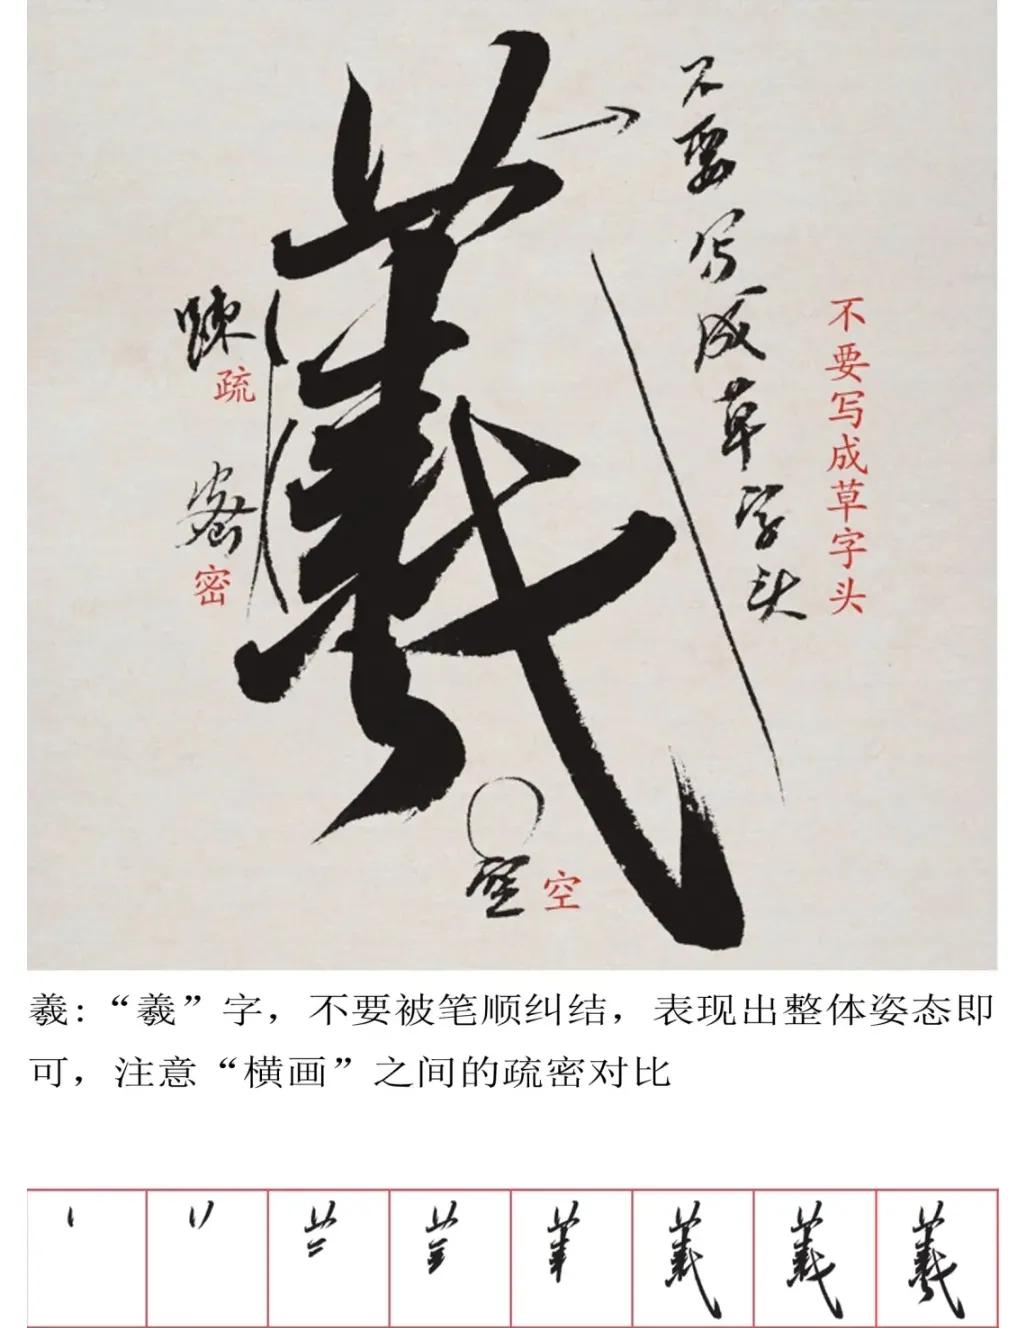 羲
不要写成草字头
不要写成草字头
疎
疏
密
密
空
空
羲：“羲”字，不要被笔顺纠结，表现出整体姿态即
可，注意“横画”之间的疏密对比